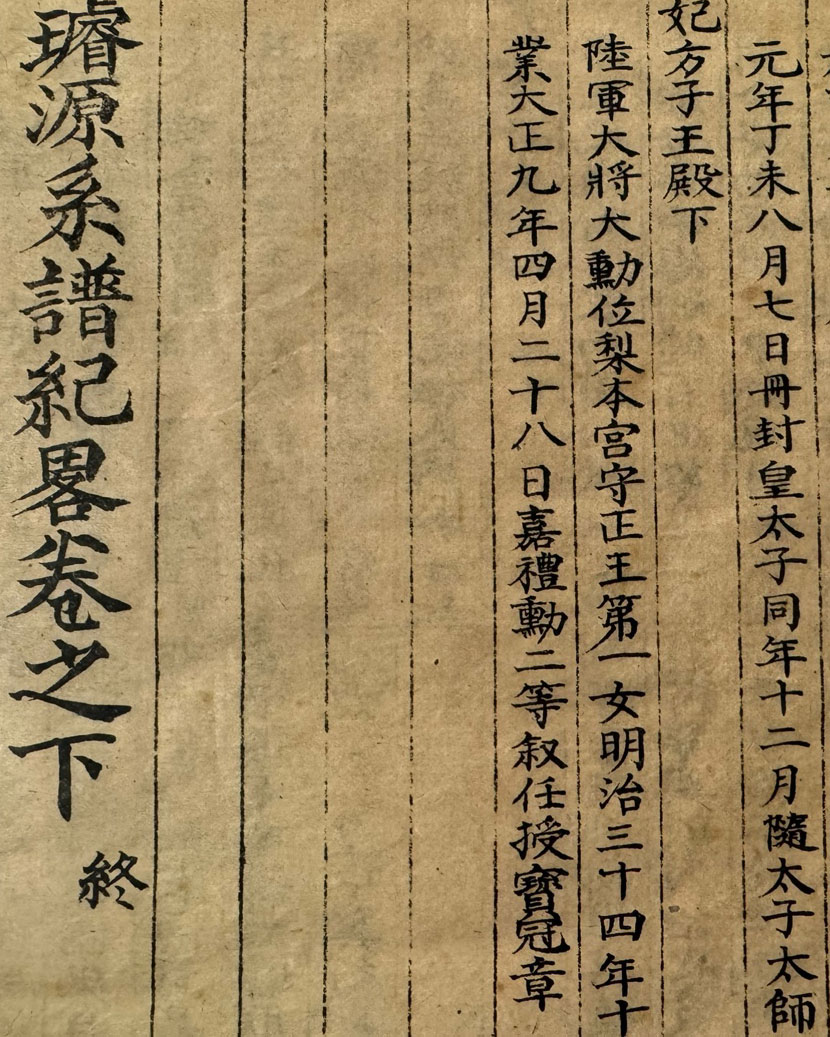 元年丁未八月七日冊封皇太子同年十二月隨太子太師
妃方子王殿下
陸軍大將大勳位梨本宮守正王第一女明治三十四年十
業大正九年四月二十八日嘉禮勳二等叙任授寶冠章
璿源系譜紀畧卷之下
終